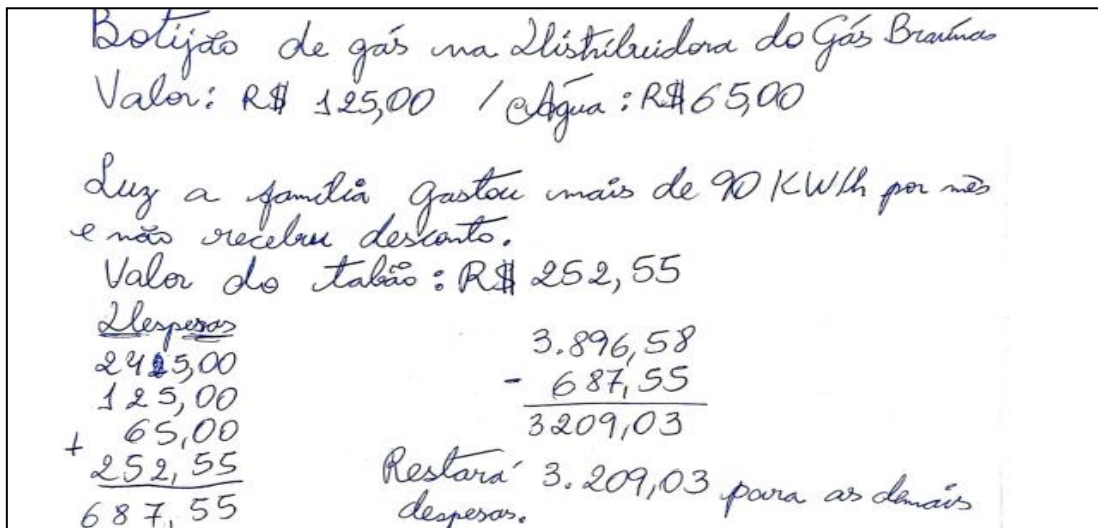 Botijão de gás na Distribuidora do Gás Braúnas
Valor: R$ 125,00 / Água: R$ 65,00
Luz a família gastou mais de 90 KW/h por mês
e não recebeu desconto.
Valor do talão: R$ 252,55
Despesas
125,00
+ 65,00
252,55
687,55
3.896,58
- 687,55
3209,03
Restará 3.209,03 para as demais
despesas.